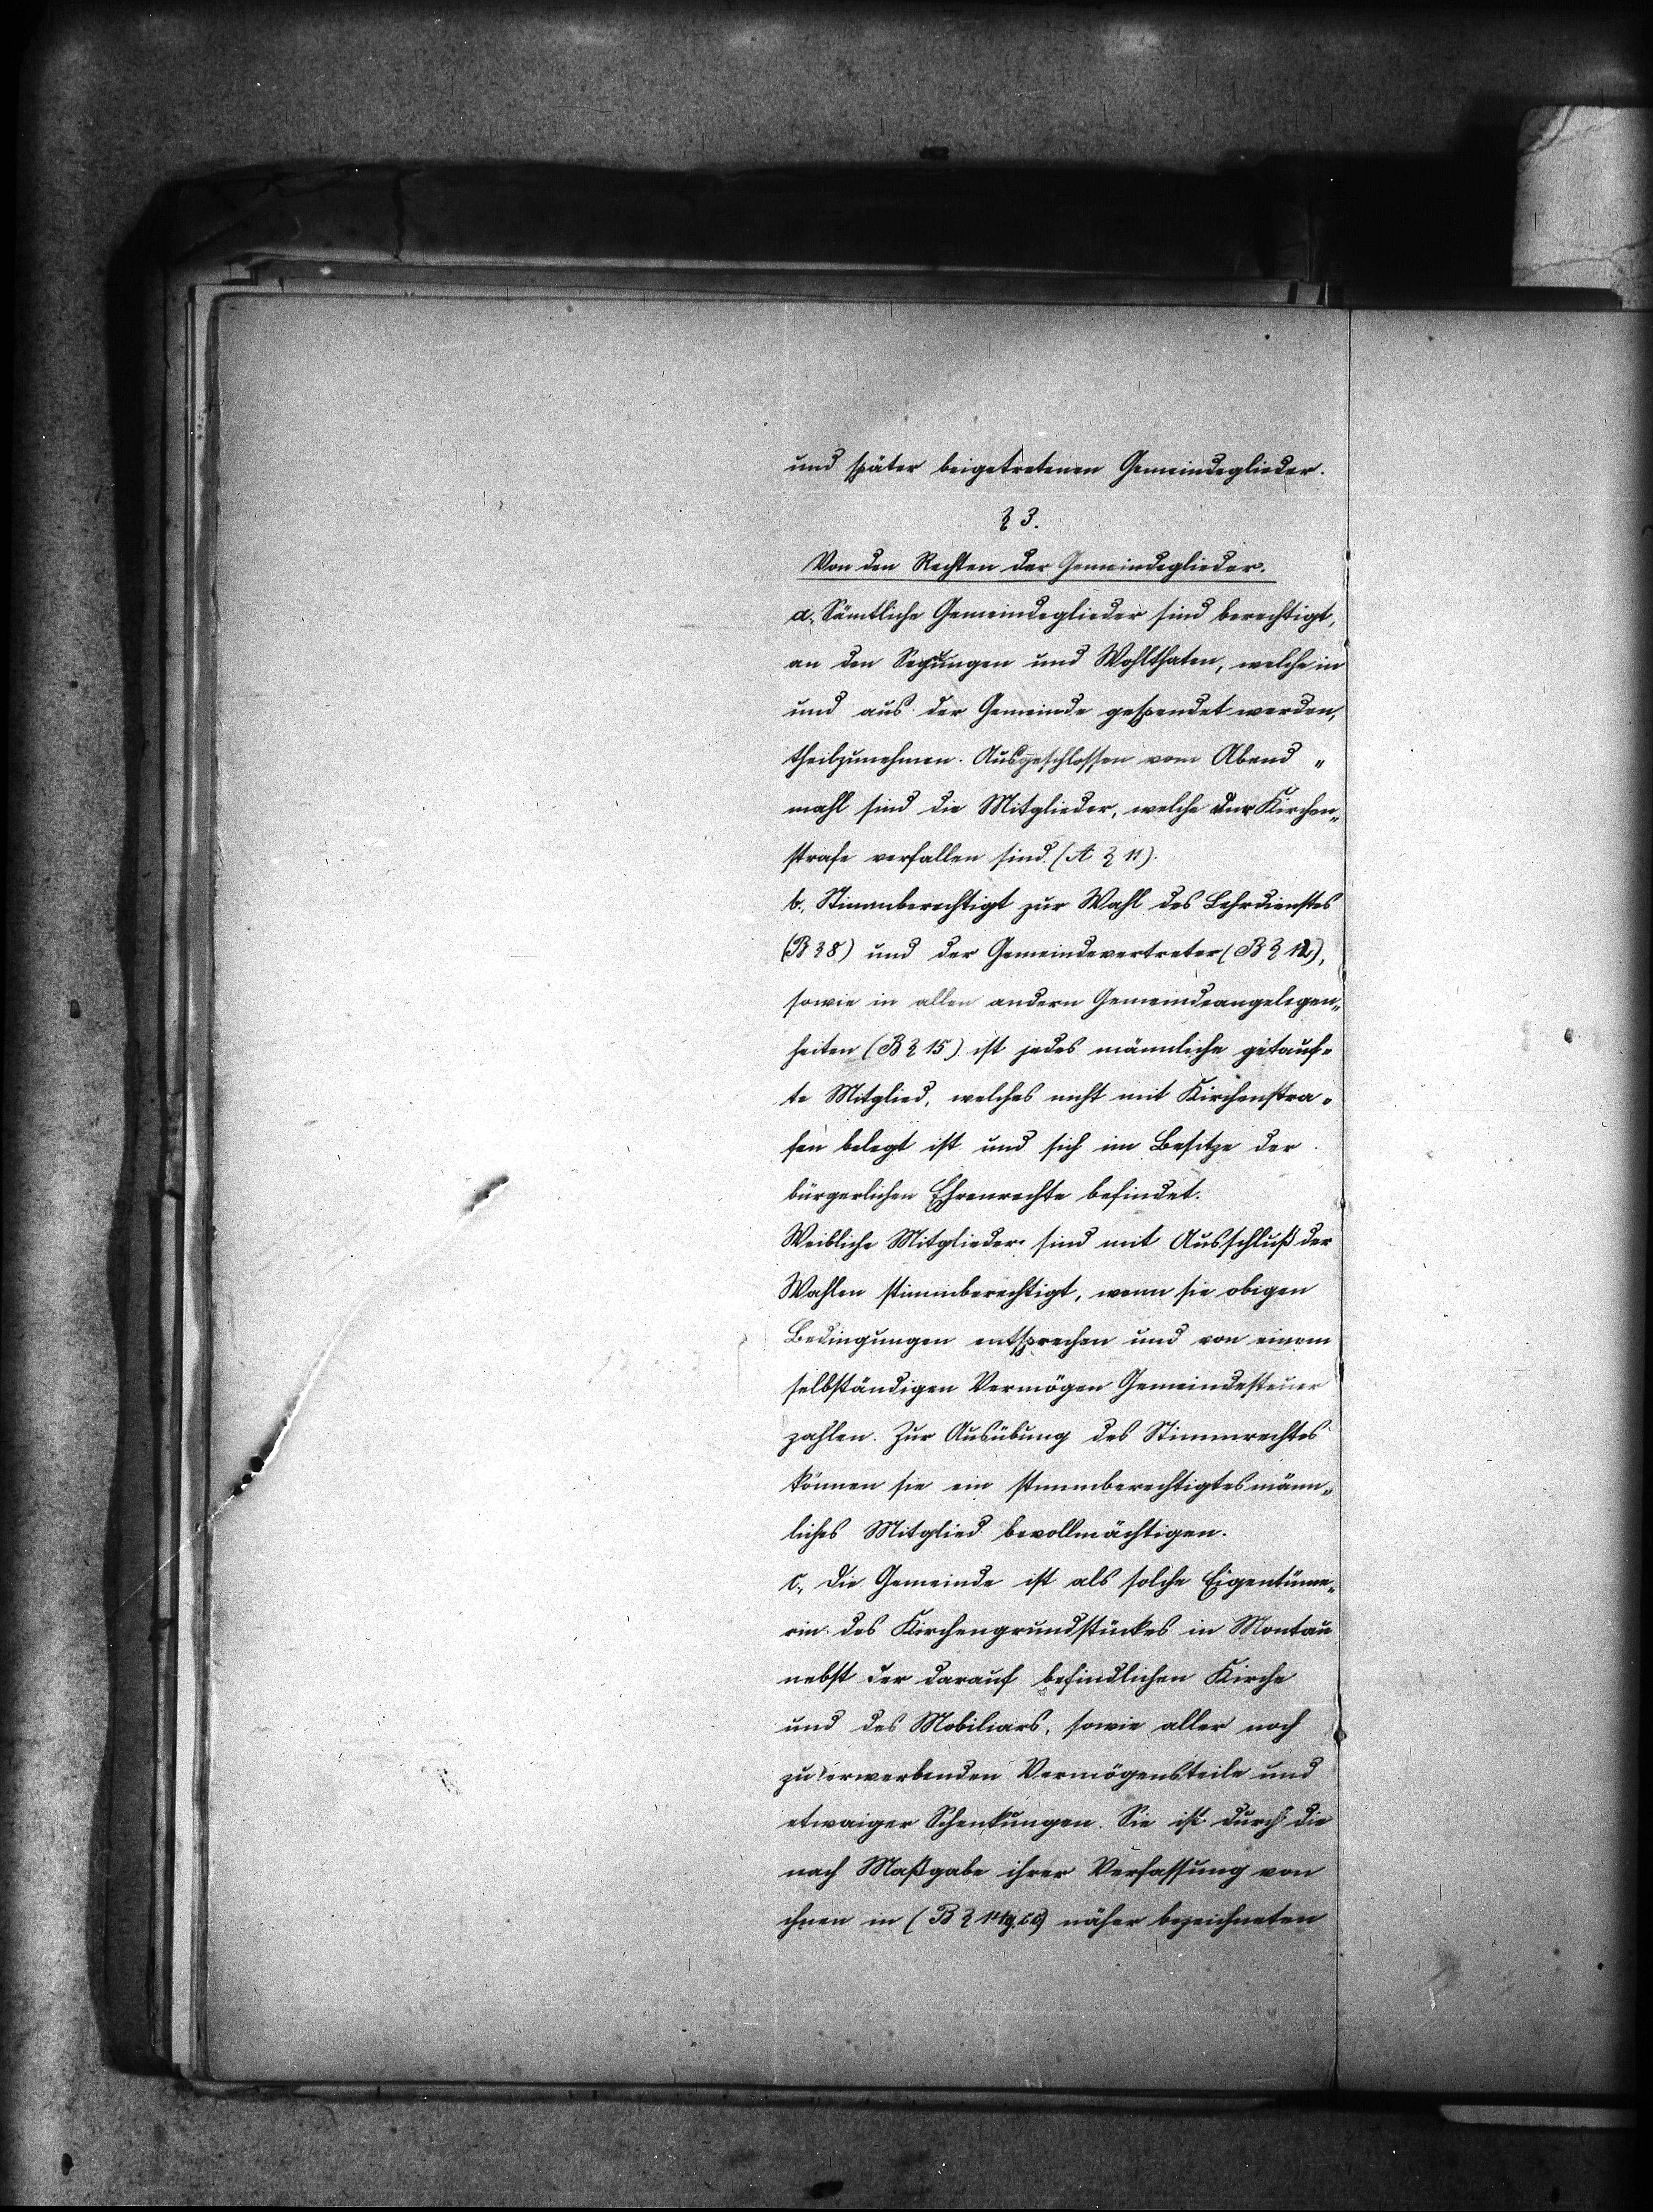 und später beigetretenen Gemeindeglieder.
§ 3.
Von den Rechten der Gemeindeglieder.
a., Sämtliche Gemeindeglieder sind berechtigt,
an den Segnungen und Wohlthaten, welche in
und aus der Gemeinde gespendet werden,
theilzunehmen. Ausgeschlossen vom Abend„
mahl sind die Mitglieder, welche der Kirchen„
strafe verfallen sind (A § 11).
b., Stimmberechtigt zur Wahl des Lehrdienstes
(B § 8) und der Gemeindevertreter (B § 12),
sowie in allen andern Gemeindeangelegen„
heiten (B § 15) ist jedes männliche getauf„
te Mitglied, welches nicht mit Kirchenstra„
fen belegt ist und sich im Besitze der
bürgerlichen Ehrenrechte befindet.
Weibliche Mitglieder sind mit Ausschluß der
Wahlen stimmberechtigt, wenn sie obigen
Bedingungen entsprechen und von einem
selbständigen Vermögen Gemeindesteuer
zahlen. Zur Ausübung des Stimmrechtes
können sie ein stimmberechtigtes männ„
liches Mitglied bevollmächtigen.
c., Die Gemeinde ist als solche Eigentüme„
rin des Kirchengrundstückes in Montau
nebst der darauf befindlichen Kirche
und des Mobiliars, sowie aller noch
zu erwerbenden Vermögensteile und
etwaiger Schenkungen. Sie ist durch die
nach Maßgabe ihrer Verfassung von
ihnen in (B § näher bezeichneten